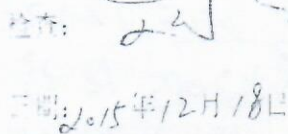 检查:
日期:2015年12月18日